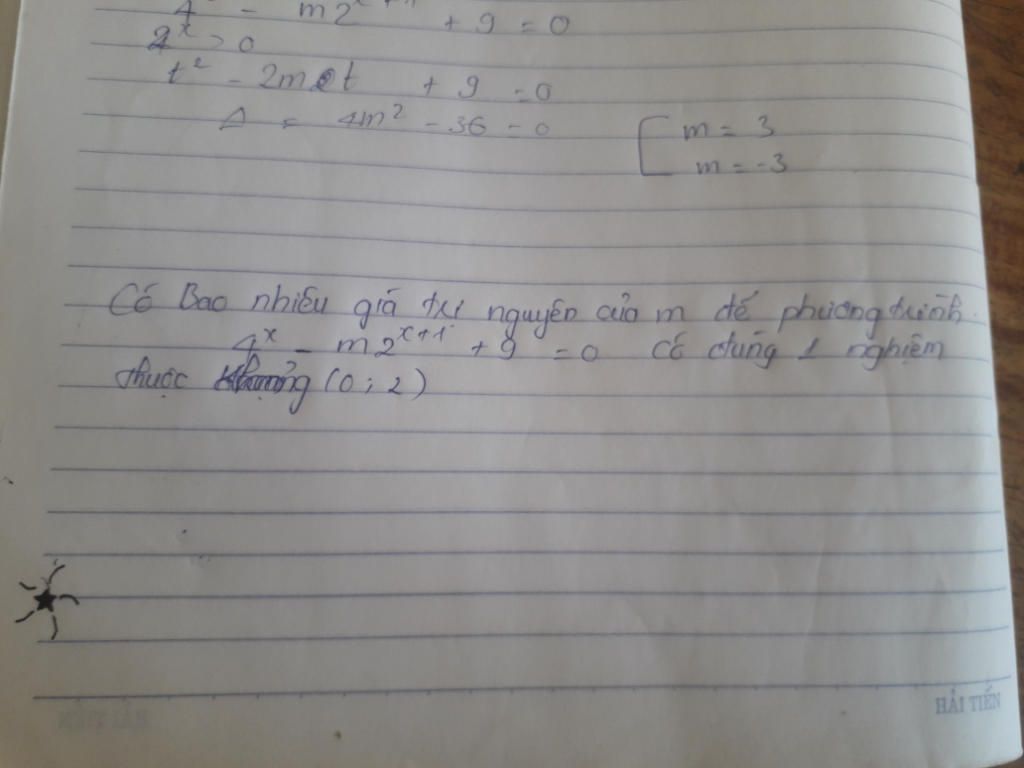 4 - m2ˣ⁺¹ + 9 = 0
2ˣ > 0
t² - 2m t + 9 = 0
Δ = 4m² - 36 = 0 [ m = 3
m = -3
Có Bao nhiêu giá trị nguyên của m để phương trình
4ˣ - m2ˣ⁺¹ + 9 = 0 có đúng 1 nghiệm
thuộc (0 ; 2)
HẢI TIẾN